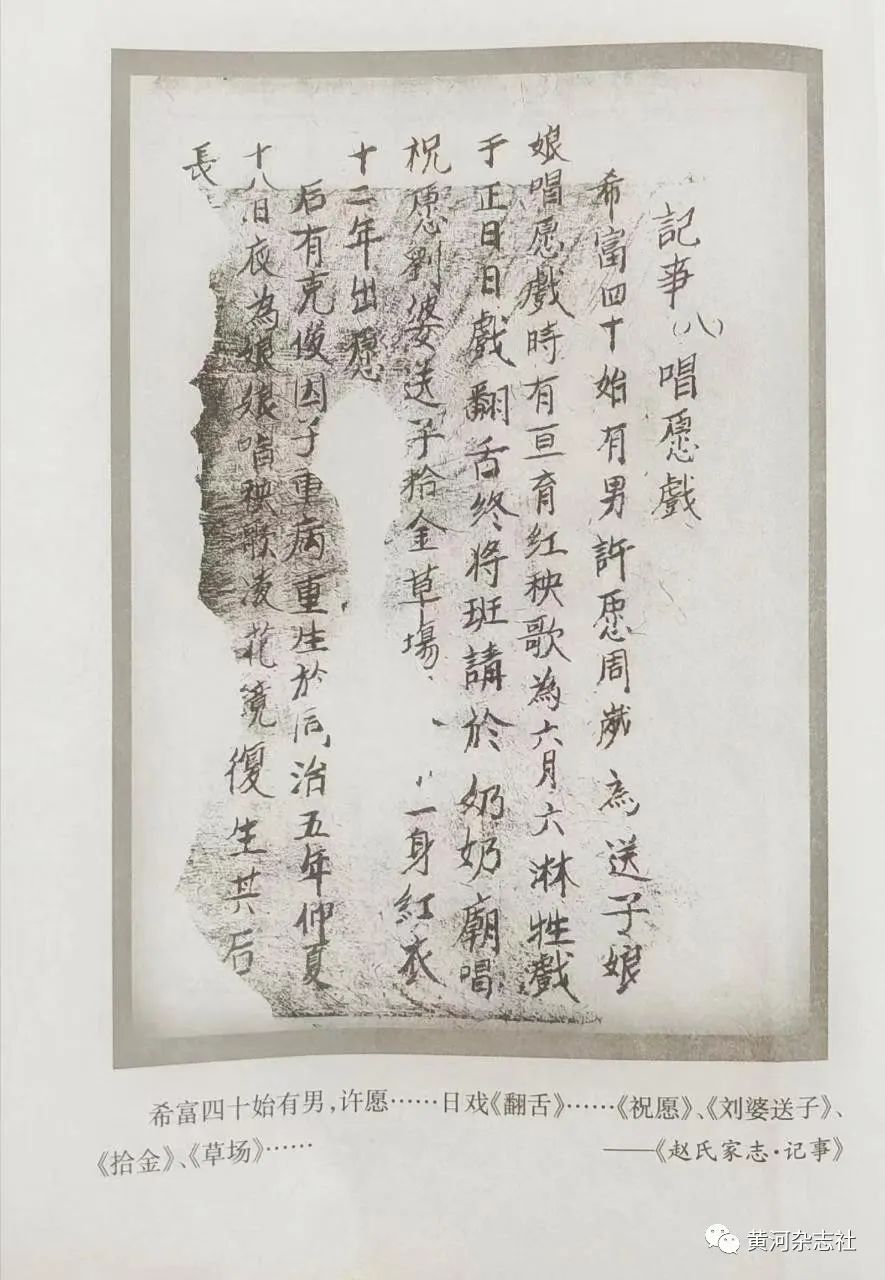 記事(八)唱愿戲
希富四十始有男許愿周歲為送子娘
娘唱愿戲時有亘育红秧歌為六月六淋牲戲
于正日日戲翻舌终将班請於奶奶廟唱
祝愿劉婆送子拾金草場 一身紅衣
十二年出愿
后有克俊因子重病重生於同治五年仲夏
十八日夜為娘娘唱秧歌凌花鏡復生其后
長
希富四十始有男,许愿……日戏《翻舌》……《祝愿》、《刘婆送子》、
《拾金》、《草场》……
——《赵氏家志·记事》
黄河杂志社